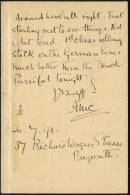 Arrived here all right. Just
starting out to see things. Not
a bit tired. 1st class rolling
stock on the German line
much better than the French.
Parsifal tonight!
6. 7. 91.
37 Richard Wagner Strasse
Bayreuth.